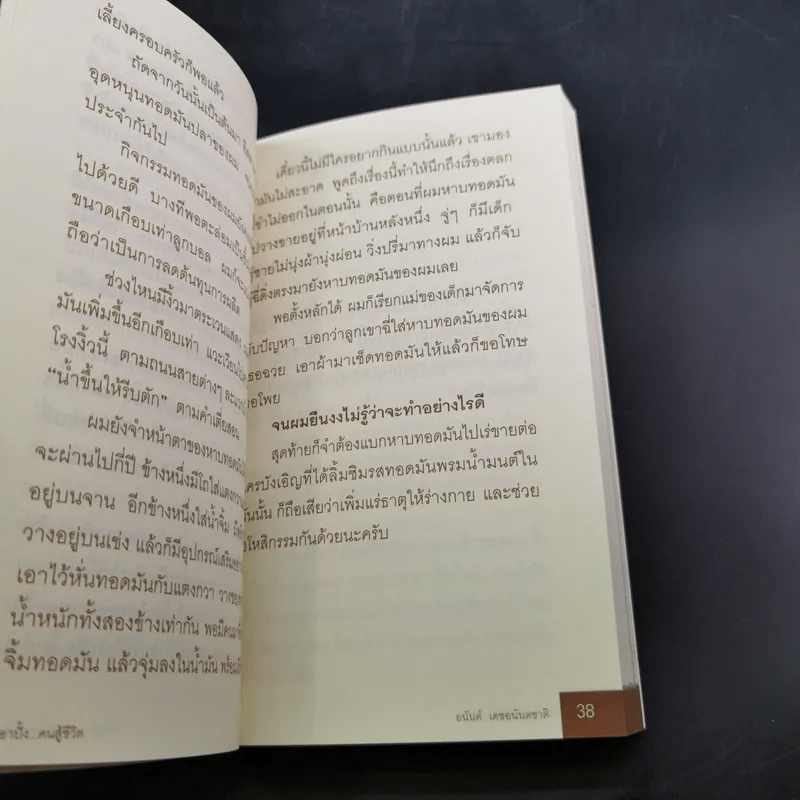 เลี้ยงครอบครัวก็พอแล้ว
ถัดจากวันนั้นเป็นต้นมา
อุดหนุนทอดมันปลาของผม
ประจำกันไป
กิจกรรมทอดมันของผม
ไปด้วยดี บางทีพอตะล่อม
ขนาดเกือบเท่าลูกบอล ผมก็
ถือว่าเป็นการลดต้นทุนการผลิต
ช่วงไหนมีงิ้วมาตระเวนแสดง
มันเพิ่มขึ้นอีกเกือบเท่า แวะเวียน
โรงงิ้วนี้ ตามถนนสายต่างๆ
“น้ำขึ้นให้รีบตัก” ตามคำเตี่ยสอน
ผมยังจำหน้าตาของหาบทอดมัน
จะผ่านไปกี่ปี ข้างหนึ่งมีโถใส่แตงกวา
อยู่บนจาน อีกข้างหนึ่งใส่น้ำจิ้ม
วางอยู่บนเข่ง แล้วก็มีอุปกรณ์
เอาไว้หั่นทอดมันกับแตงกวา
น้ำหนักทั้งสองข้างเท่ากัน พอมี
จิ้มทอดมัน แล้วจุ่มลงในน้ำมัน
อาปั้ง...คนสู้ชีวิต
เดี๋ยวนี้ไม่มีใครอยากกินแบบนั้นแล้ว เขามอง
มันไม่สะอาด พูดถึงเรื่องนี้ทำให้นึกถึงเรื่องตลก
ขำไม่ออกในตอนนั้น คือตอนที่ผมหาบทอดมัน
ปวางขายอยู่ที่หน้าบ้านหลังหนึ่ง จู่ๆ ก็มีเด็ก
ชายไม่นุ่งผ้านุ่งผ่อน วิ่งปรี่มาทางผม แล้วก็จับ
ฉี่ดิ่งตรงมายังหาบทอดมันของผมเลย
พอตั้งหลักได้ ผมก็เรียกแม่ของเด็กมาจัดการ
กับปัญหา บอกว่าลูกเขาฉี่ใส่หาบทอดมันของผม
ธอฉวย เอาผ้ามาเช็ดทอดมันให้แล้วก็ขอโทษ
อโพย
จนผมยืนงงไม่รู้ว่าจะทำอย่างไรดี
สุดท้ายก็จำต้องแบกหาบทอดมันไปเร่ขายต่อ
ใครบังเอิญที่ได้ลิ้มชิมรสทอดมันพรมน้ำมนต์ใน
วันนั้น ก็ถือเสียว่าเพิ่มแร่ธาตุให้ร่างกาย และช่วย
อโหสิกรรมกันด้วยนะครับ
อนันต์ เดชอนันตชาติ
38